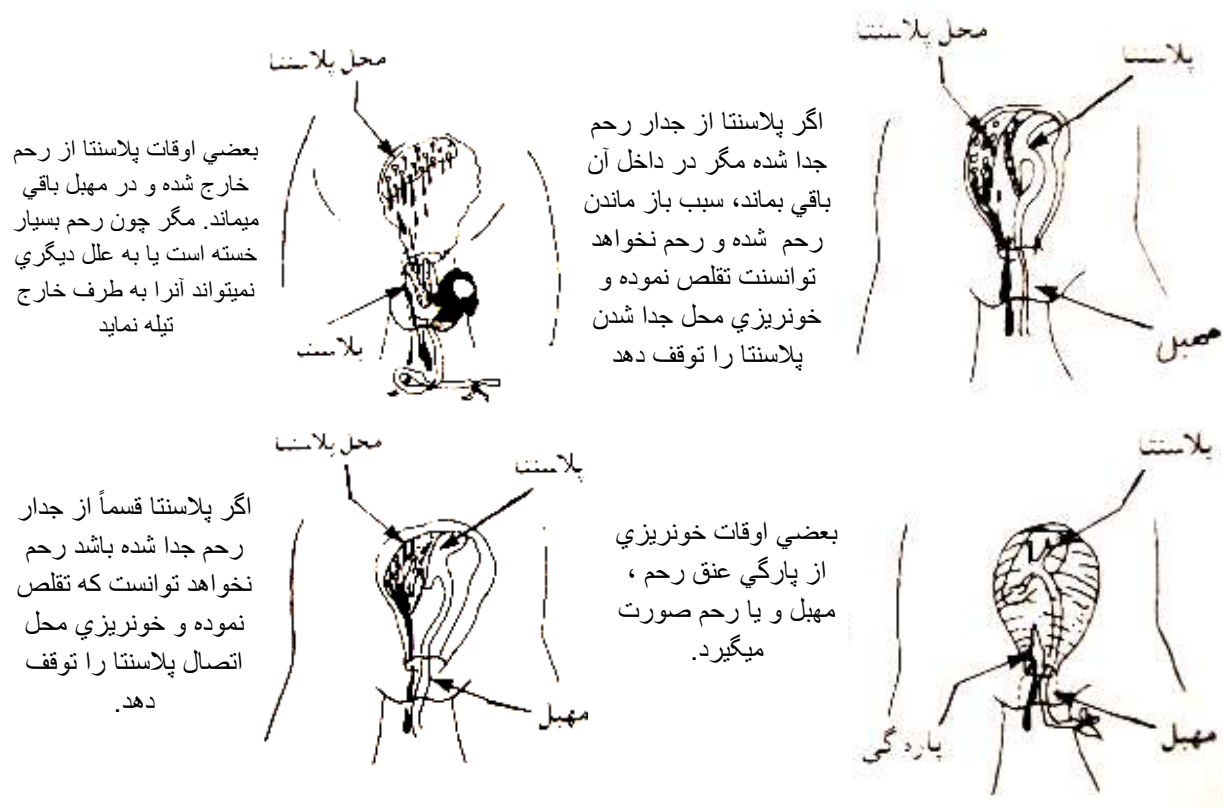 محل پلاسنتا
پلاسنتا
اگر پلاسنتا از جدار رحم
جدا شده مگر در داخل آن
باقي بماند، سبب باز ماندن
رحم شده و رحم نخواهد
توانسنت تقلص نموده و
خونريزي محل جدا شدن
پلاسنتا را توقف دهد
مهبل
محل پلاسنتا
بعضي اوقات پلاسنتا از رحم
خارج شده و در مهبل باقي
ميماند. مگر چون رحم بسيار
خسته است يا به علل ديگري
نميتواند آنرا به طرف خارج
تيله نمايد
پلاسنتا
پلاسنتا
بعضي اوقات خونريزي
از پارگي عنق رحم ،
مهبل و يا رحم صورت
ميگيرد.
پارد گي
مهبل
محل پلاسنتا
پلاسنتا
اگر پلاسنتا قسماً از جدار
رحم جدا شده باشد رحم
نخواهد توانست که تقلص
نموده و خونريزي محل
اتصال پلاسنتا را توقف
دهد.
مهبل